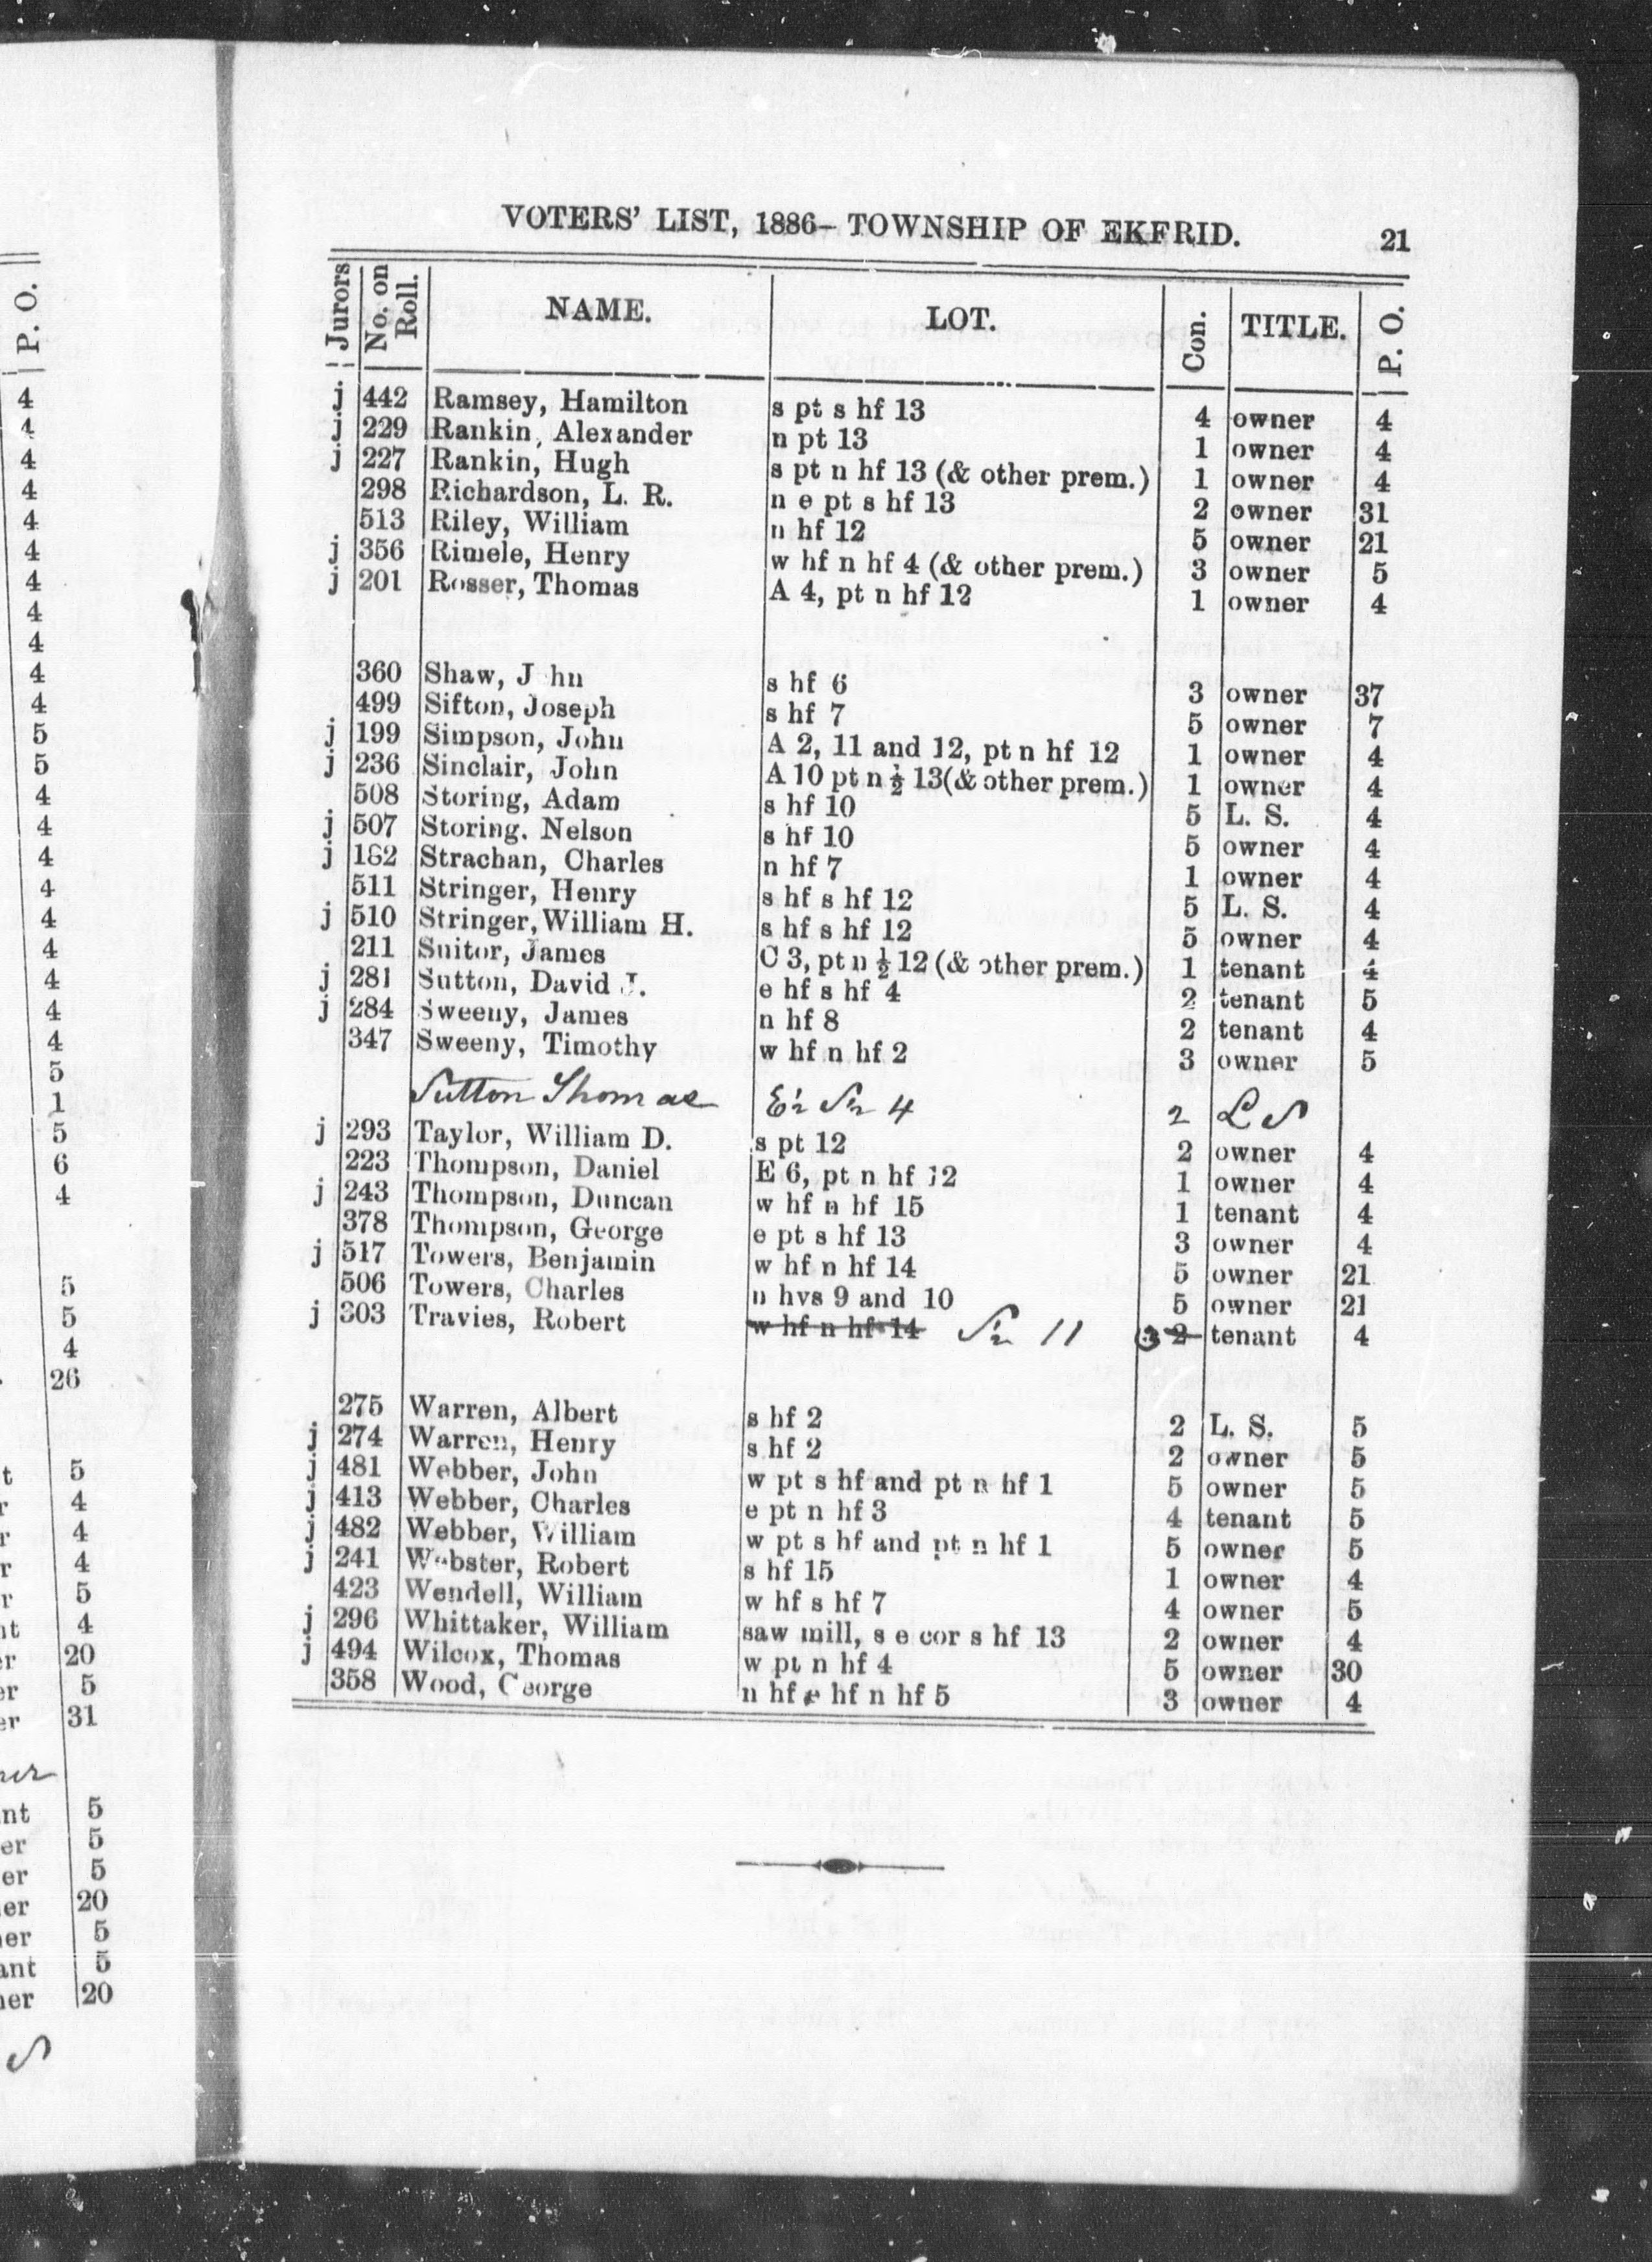 VOTERS' LIST, 1886– TOWNSHIP OF EKFRID. 21
Jurors No. on Roll. NAME. LOT. Con. TITLE. P. O.
j 442 Ramsey, Hamilton s pt s hf 13 4 owner 4
j 229 Rankin, Alexander n pt 13 1 owner 4
j 227 Rankin, Hugh s pt n hf 13 (& other prem.) 1 owner 4
298 Richardson, L. R. n e pt s hf 13 2 owner 31
513 Riley, William n hf 12 5 owner 21
j 356 Rimele, Henry w hf n hf 4 (& other prem.) 3 owner 5
j 201 Rosser, Thomas A 4, pt n hf 12 1 owner 4
360 Shaw, J hn s hf 6 3 owner 37
499 Sifton, Joseph s hf 7 5 owner 7
j 199 Simpson, John A 2, 11 and 12, pt n hf 12 1 owner 4
j 236 Sinclair, John A 10 pt n ½ 13(& other prem.) 1 owner 4
508 Storing, Adam s hf 10 5 L. S. 4
j 507 Storing. Nelson s hf 10 5 owner 4
j 182 Strachan, Charles n hf 7 1 owner 4
511 Stringer, Henry s hf s hf 12 5 L. S. 4
j 510 Stringer, William H. s hf s hf 12 5 owner 4
211 Suitor, James C 3, pt n ½ 12 (& other prem.) 1 tenant 4
j 281 Sutton, David J. e hf s hf 4 2 tenant 5
j 284 Sweeny, James n hf 8 2 tenant 4
347 Sweeny, Timothy w hf n hf 2 3 owner 5
Sutton Thomas E½ S½ 4 2 L S
j 293 Taylor, William D. s pt 12 2 owner 4
223 Thompson, Daniel E 6, pt n hf 12 1 owner 4
j 243 Thompson, Duncan w hf n hf 15 1 tenant 4
378 Thompson, George e pt s hf 13 3 owner 4
j 517 Towers, Benjamin w hf n hf 14 5 owner 21
506 Towers, Charles n hvs 9 and 10 5 owner 21
j 303 Travies, Robert w hf n hf 14 S½ 11 3 2 tenant 4
275 Warren, Albert s hf 2 2 L. S. 5
j 274 Warren, Henry s hf 2 2 owner 5
j 481 Webber, John w pt s hf and pt n hf 1 5 owner 5
j 413 Webber, Charles e pt n hf 3 4 tenant 5
j 482 Webber, William w pt s hf and pt n hf 1 5 owner 5
j 241 Webster, Robert s hf 15 1 owner 4
423 Wendell, William w hf s hf 7 4 owner 5
j 296 Whittaker, William saw mill, s e cor s hf 13 2 owner 4
j 494 Wilcox, Thomas w pt n hf 4 5 owner 30
358 Wood, George n hf e hf n hf 5 3 owner 4